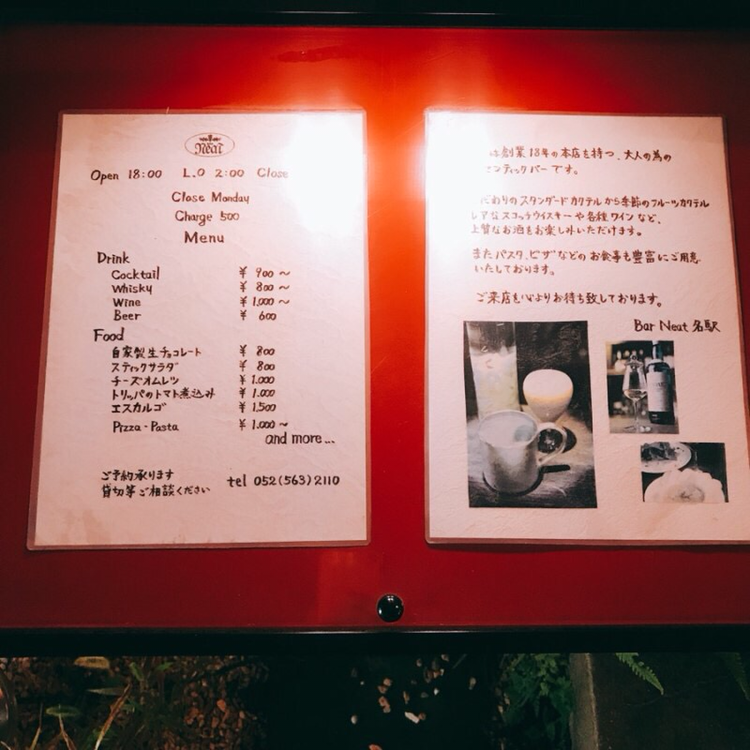 Neat
Open 18:00 L.O 2:00 Close
Close Monday
Charge 500
Menu
Drink
Cocktail ¥ 900 ~
Whisky ¥ 800 ~
Wine ¥ 1,000 ~
Beer ¥ 600
Food
自家製生チョコレート ¥ 800
スティックサラダ ¥ 800
チーズオムレツ ¥ 1,000
トリッパのトマト煮込み ¥ 1,000
エスカルゴ ¥ 1,500
Pizza・Pasta ¥ 1,000 ~
and more...
ご予約承ります
貸切等ご相談ください tel 052(563)2110
は創業18年の本店を持つ、大人の為の
センティックバーです。
だわりのスタンダードカクテルから季節のフルーツカクテル
レアなスコッチウイスキーや各種ワインなど、
上質なお酒をお楽しみいただけます。
またパスタ、ピザなどのお食事も豊富にご用意
いたしております。
ご来店を心よりお待ち致しております。
Bar Neat 名駅